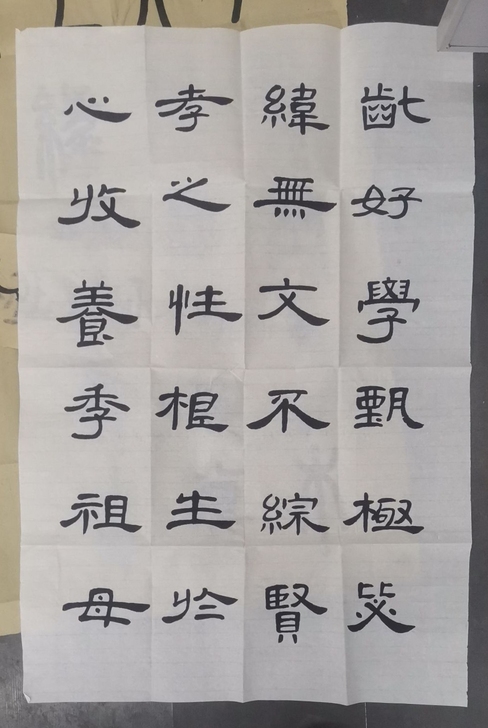 齔好學甄極毖
緯無文不綜賢
孝之性根生於
心收養季祖母